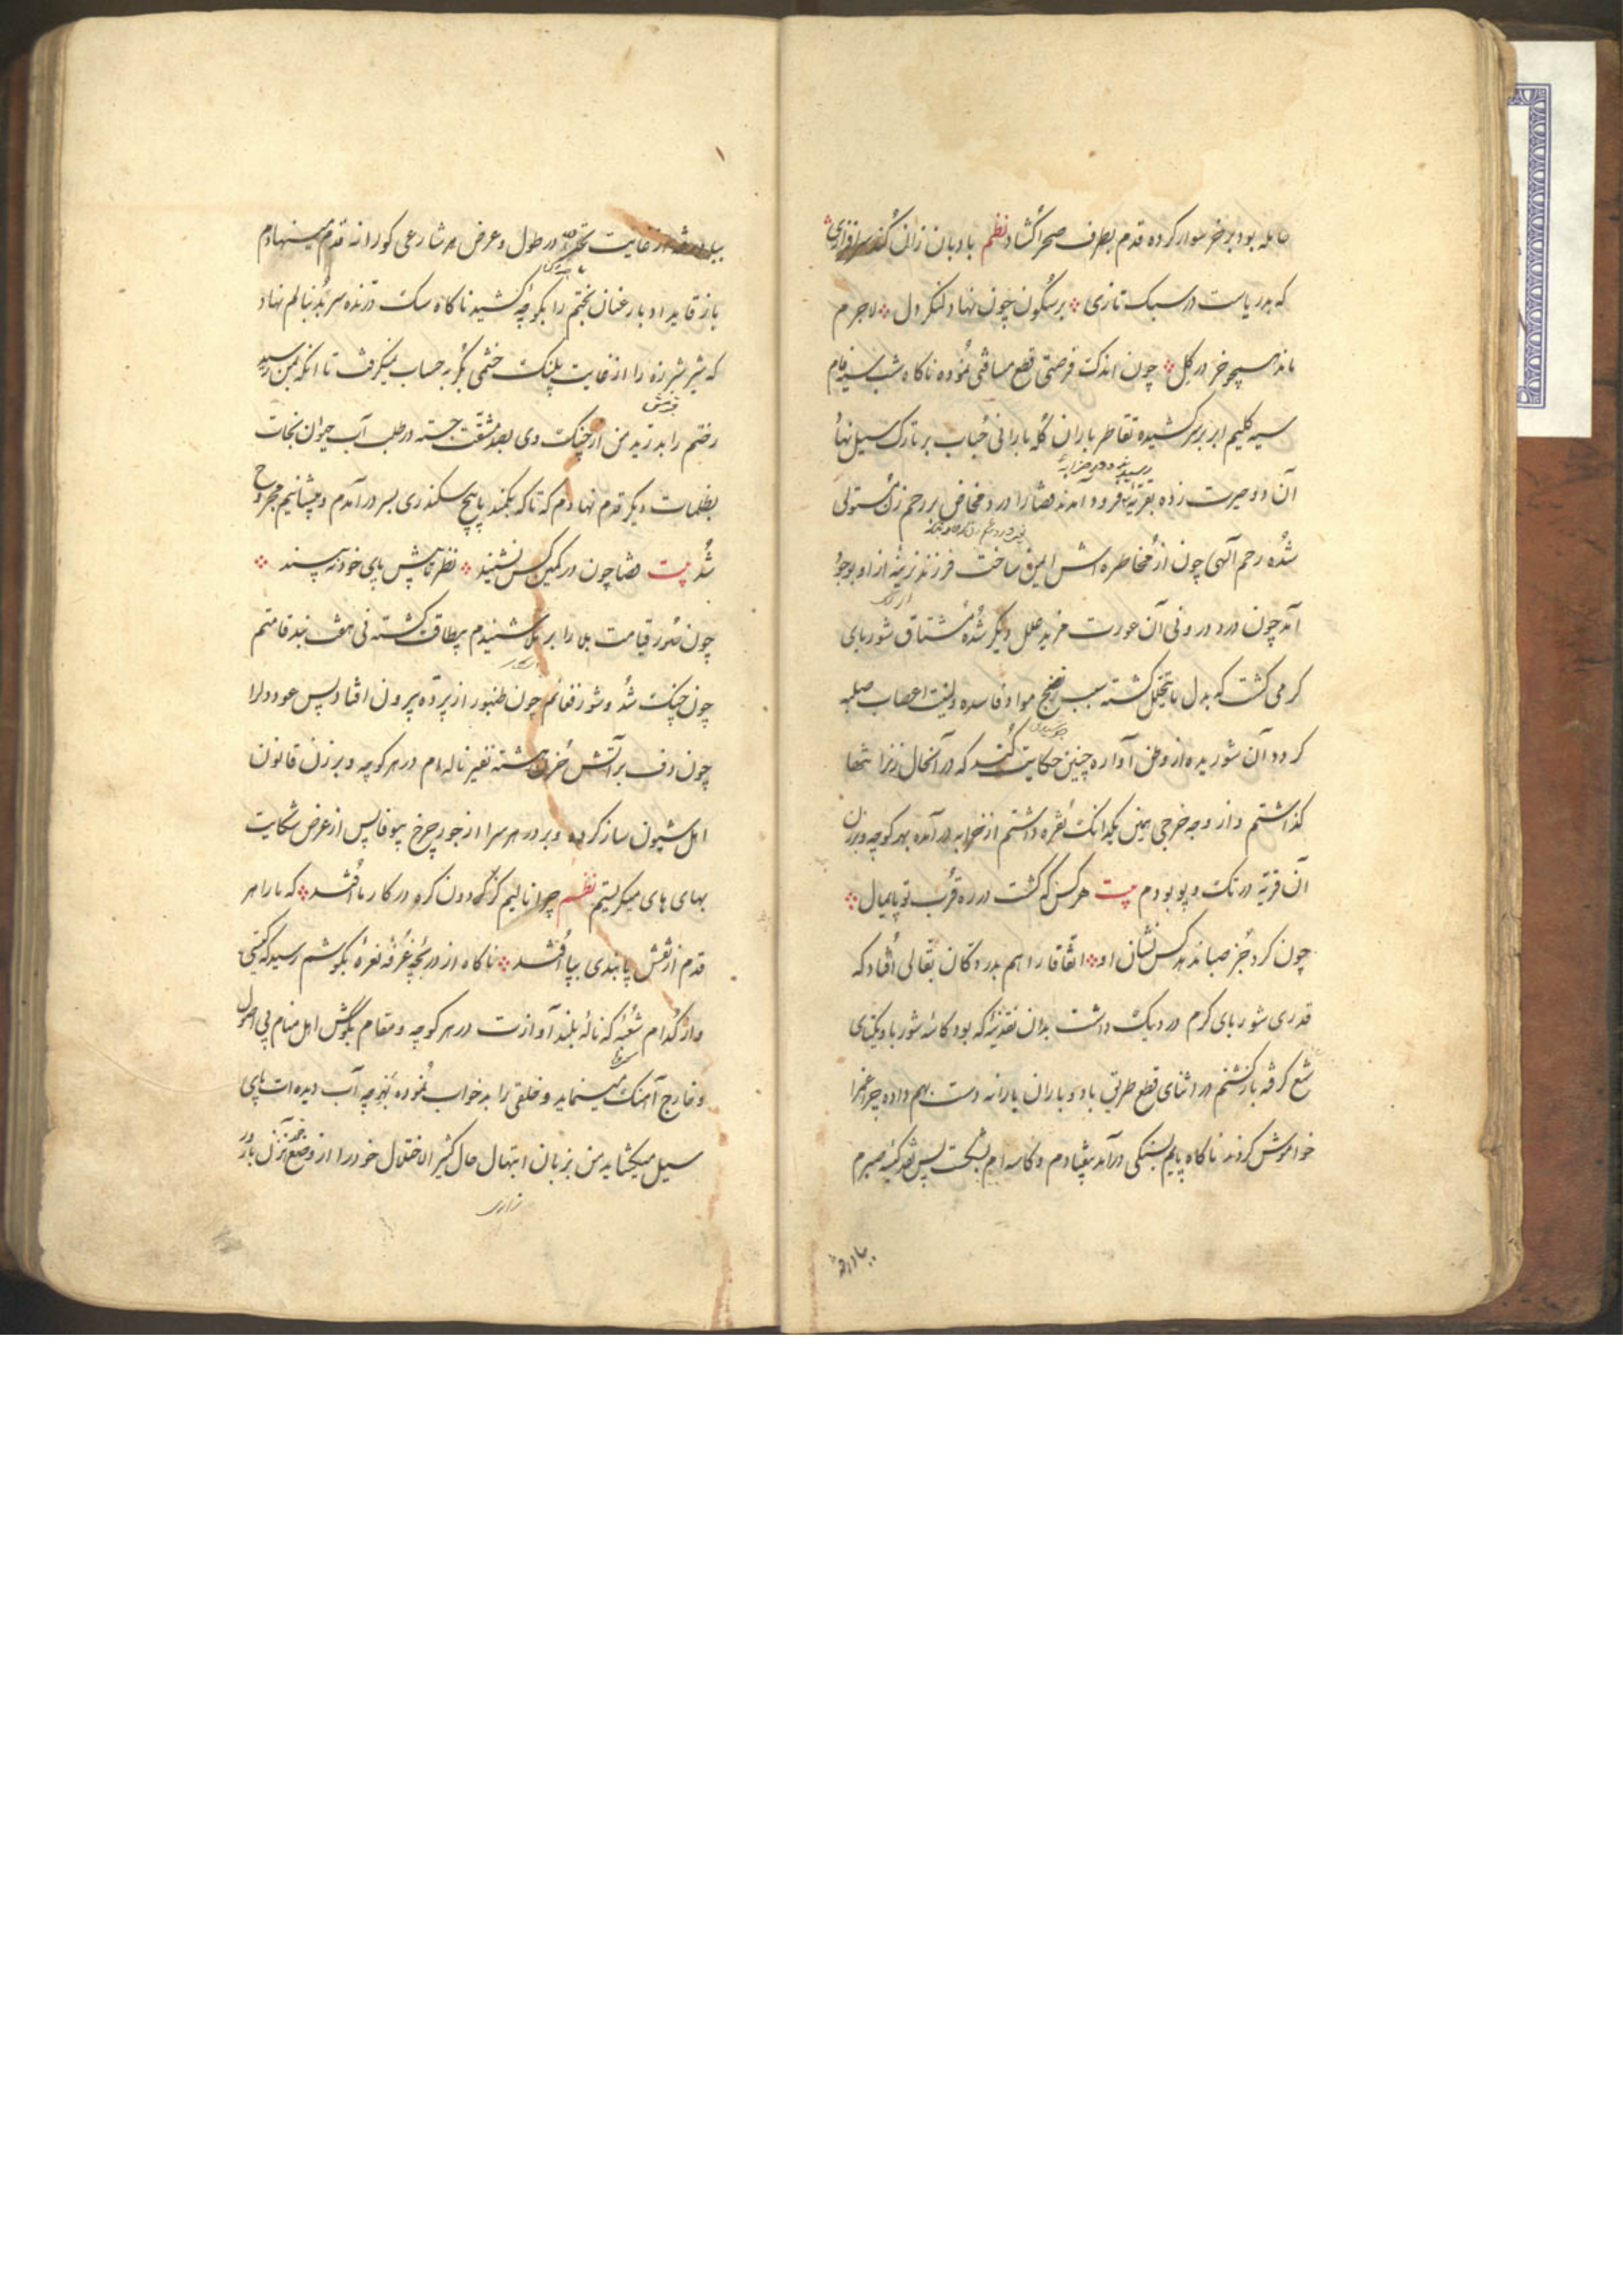 حامله بود بر خر سوار کرده قدم بطرف صحرا گشاد نظم بادبان زان کند سرافرازی
که بدریاست در سبک تازی برسکون چون نهاد لنکر دل لاجرم
ماند همچو خر در گل چون اندک فرصتی قطع مسافتی نموده ناکاه شب
سیه کلیم ابر بر سر کشیده تقاطر باران کله بارانی حباب بر تارک سیل نهاد
آن دو حیرت زده بقریه فرود آمدند قضا را درد مخاض بر رحم زن مستولی
شده رحم الهی چون از مخاطره اش ایمن ساخت فرزند نرینه از او بوجود
آمد چون درد درونی آن عورت مزید علل دیگر شده مشتاق شوربای
کرمی گشت که بدل ما یتحلل گشته سبب نضج مواد فاسده ولینت اعصاب صلبه
کردد آن شوریده از وطن آواره چنین حکایت کند که در آنحال زنرا تنها
گذاشتم و از وجه خرجی همین یکدانک نقره داشتم از خرابه در آمده بهر کوچه و برزن
آن قریه در تک و پو بودم بیت هر کس که گشت در ره قرب تو پایمال
چون کرد جز صبا ندهد کس نشان او اتفاقا راهم بدر دکان بقالی افتاد که
قدری شوربای کرم در دیک داشت بدان نقدینه که بود کاسه شوربا و یکتای
شمع گرفته بازگشتم در اثنای قطع طریق باد و باران یارانه دست بهم داده چراغرا
خواموش کردند ناکاه پایم بسنکی درآمد بیفتادم و کاسه ام بشکست پس نقد کیسه صبرم
بباد رفته
بباد رفته از غایت تحیر در طول و عرض هر شارعی کورانه قدم مینهادم
باز قاید ادبار عنان بختم را بکوچه کشید ناکاه سک درنده سر بدنبالم نهاد
که شیر شرزه را از غایت پلنک خشمی کربه حساب میکرفت تا آنکه بمن رسید
رختم را بدرید من از چنک وی بصد مشقت جسته در طلب آب حیوان نجات
بظلمات دیگر قدم نهادم که ناکه بکمند پاپیچ سکندری بسر درآمدم و پیشانیم مجروح
شد بیت قضا چون در کمین کس نشیند نظر تا پیش پای خود نه بیند
چون صور قیامت بلا را بر ملا شنیدم بیطاقت گشته نی هفت بند قامتم
چون چنک شد و شور فغانم چون طنبور از پرده بیرون افتاد پس عود دلرا
چون دف بر آتش حزن هشته نفیر ناله ام در هر کوچه و برزن قانون
اهل شیون ساز کرده و بر در هر سرا از جور چرخ بیوفا پس از عرض شکایت
بهای های میکریستم نظم چرا نالیم کز گردون کره در کار ما افتد که ما را هر
قدم از نقش پا بندی بپا افتد ناکاه از دریچه غرفه نعره بکوشم رسید که کیستی
و از کدام شعبه که ناله بلند آوازت در هر کوچه و مقام بگوش اهل منام بی اصول
و خارج آهنک مینماید و خلقی را بد خواب نموده بهر چه آب دیده ات پای
سیل میکشاید من بزبان ابتهال حال کثیر الاختلال خود را از وضع
زاری